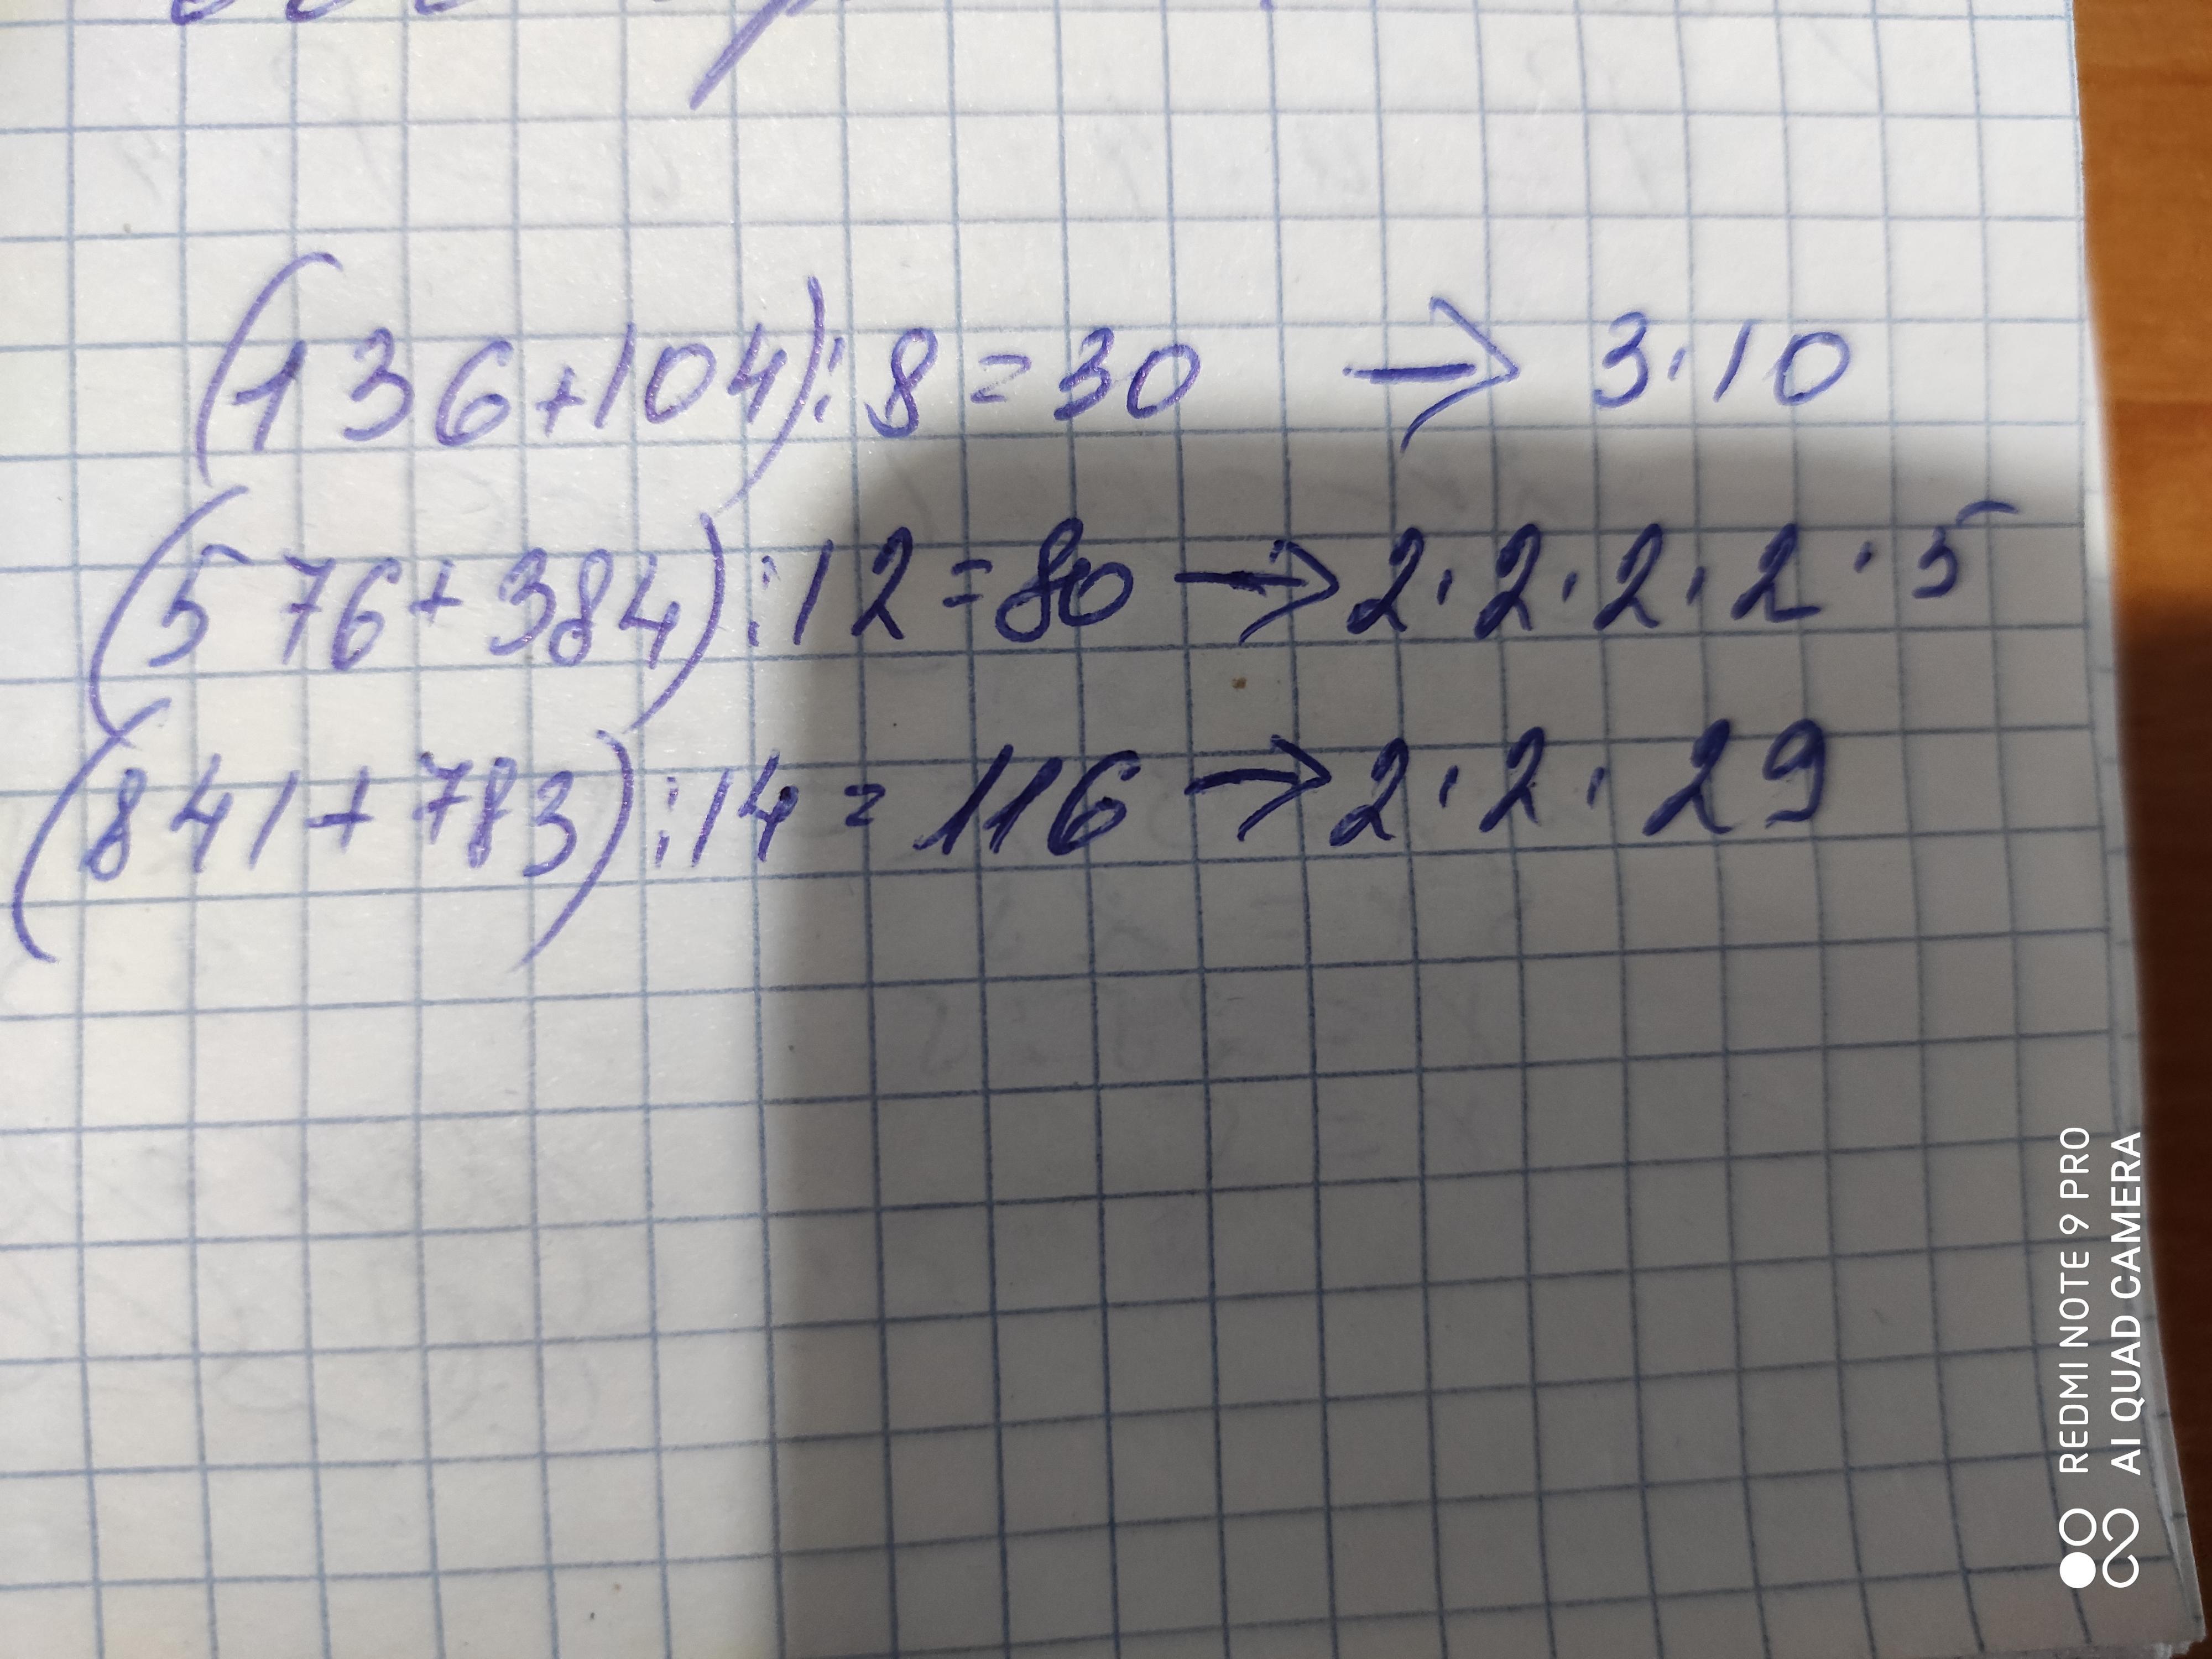 (136+104):8=30 → 3·10
(576+384):12=80 → 2·2·2·2·5
(841+783):14=116 → 2·2·29
REDMI NOTE 9 PRO
AI QUAD CAMERA